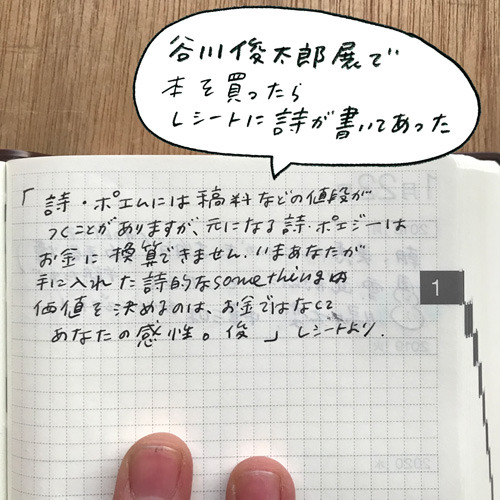 谷川俊太郎展で
本を買ったら
レシートに詩が書いてあった
「詩・ポエムには稿料などの値段が
つくことがありますが、元になる詩・ポエジーは
お金に換算できません。いまあなたが
手に入れた詩的なsomethingの
価値を決めるのは、お金ではなくて
あなたの感性。俊」レシートより.
1